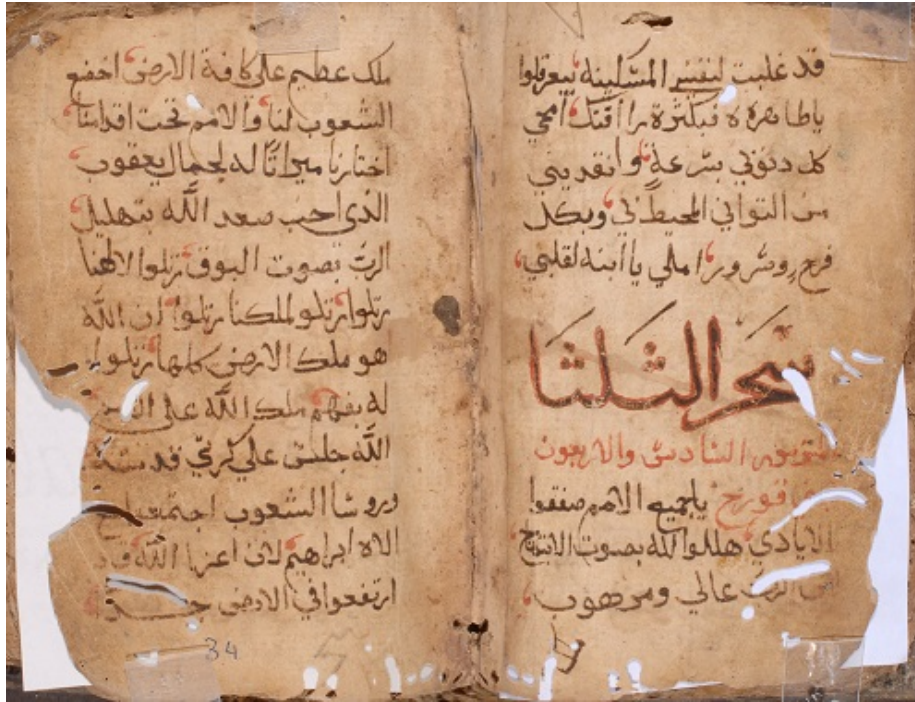 قد غلبت لنفسي المسكينه بيعرقلوا
ياطاهرة ه فبكثرة رأفتك امحي
كل دنوبي بسرعةٍ وانقديني
من التواني المحيط بي وبكل
فرحٍ وسرور املي يا ابنه لقلبي
سحر الثلثا
السادس والاربعون
قورح ياجميع الامم صفقوا
الايادي هللوا لله بصوت الابتهاج
الرب عالي ومرهوب
ملك عظيم علي كافة الارض اخضع
الشعوب لنا والامم تحت اقدامنا
اختارنا ميراثًا له لجمال يعقوب
الذي احب صعد اللَّه بتهليل
الربّ بصوت البوق رتلوا لالهنا
رتلوا رتلو لملكنا رتلوا ان اللَّه
هو ملك الارض كلها رتلوا
له بفهم ملك اللَّه علي
اللَّه جلس علي كرسي قدسه
وروسا الشعوب اجتمعوا مع
الاه ابراهيم لان اعزا اللَّه قد
ارتفعوا في الارض جدًا
34